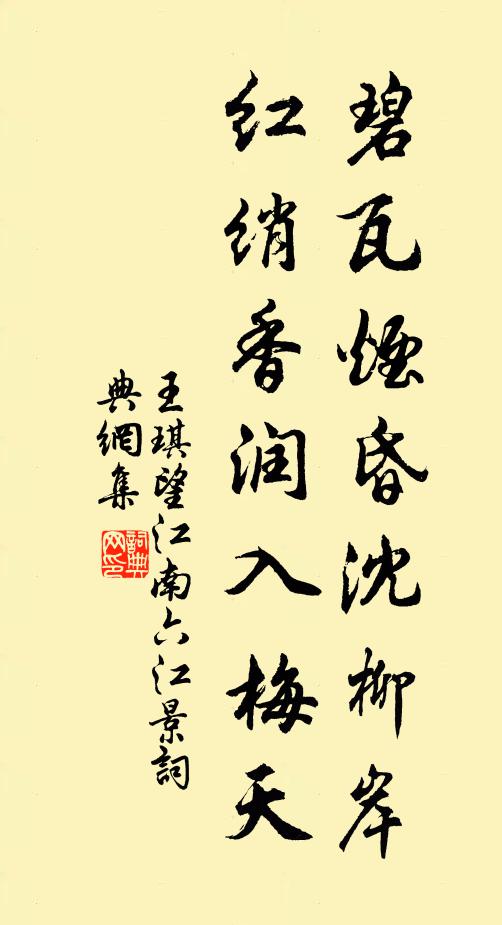 碧瓦煙昏沈柳岸
红绡香润入梅天
王琪望江南六江景詞
典網集
詞典
网印